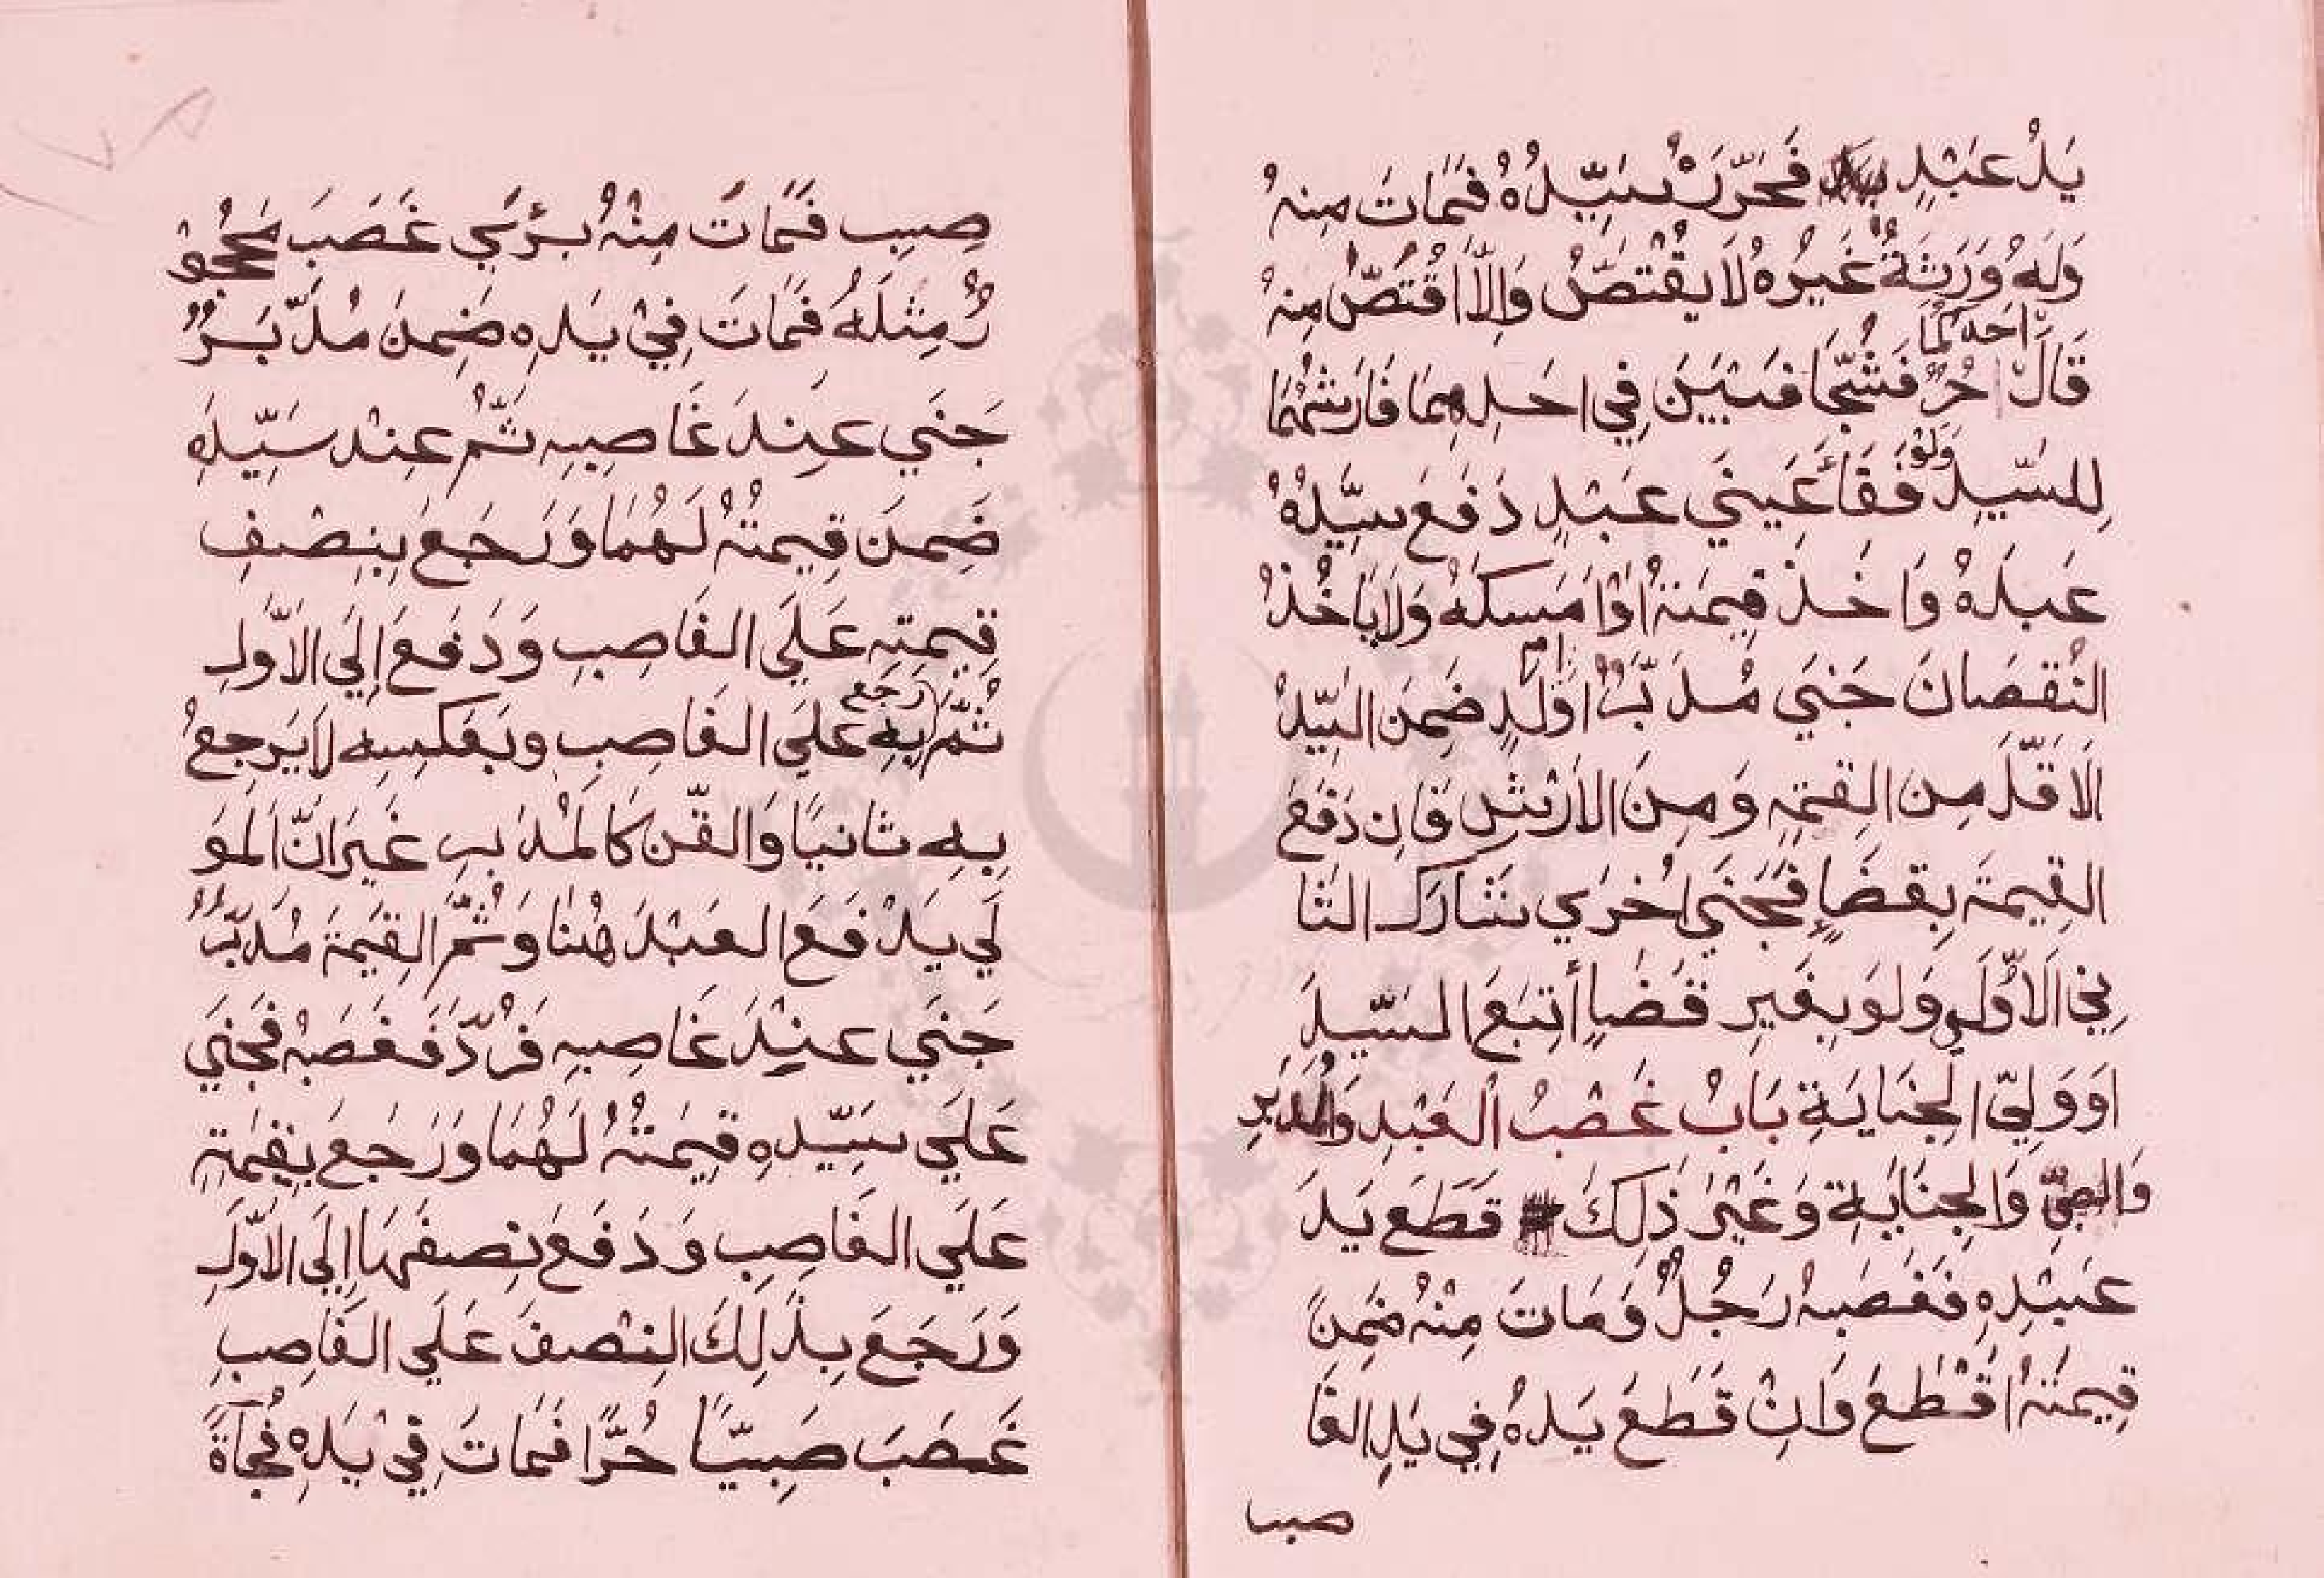 يَدُ عَبْدٍ فَحَرَّرَهُ سَيِّدُهُ فَمَاتَ مِنهُ
وَلَهُ وَرَثَةٌ غَيرُهُ لَا يَقْتَصُّ وَاِلَّا اقْتُصَّ مِنهُ
قَالَ اَحَدكُمَا حُرٌّ فَشُجَّا فبَيَّنَ فِي اَحَدِهِمَا فَارشُهُمَا
لِلسَّيِّدِ وَلَوْ فَقَأَ عَينَي عَبْدٍ دَفَعَ سيِّدُهُ
عَبدَهُ وَاَخَذَ قِيمَتهُ اَوْ اَمسَكَهُ وَلَا يَاخُذُ
النُقصَانَ جَنَي مُدَبَّرٌ اَوْ اُم وَلَدٍ ضَمِنَ السَّيّدُ
الَاقَلَّ مِن القِيمَةِ وَمِنَ الاَرْشِ فَاِن دَفَعَ
القِيمَةَ بِقضَاءٍ فَجَنَي اُخرَي شَارَكَ الثَا
نِي الَاوَّلَ وَلَو بِغَيرِ قَضَاءٍ اَتبَعَ السَّيِّدَ
اَو وَلِيّ الجِنَايَةِ بَابُ غَصْبُ الْعَبْدِ وَالْمُدَبَّرِ
وَالصَبِيِّ وَالجِنَايَةِ وَغَيْرَ ذَلِكَ قَطَعَ يَدَ
عَبْدِهِ فَغَصَبهُ رَجُلٌ وَمَاتَ مِنْهُ ضَمِنَ
قِيمَتَهُ اَقْطَعَ وَاِنْ قَطَعَ يَدهُ فِي يَدِ الغَا
صب
صِبِ فَمَاتَ مِنْهُ بَرِئَ غَصَبَ مَحْجُو
رٌ مِثلَهُ فَمَاتَ فِيْ يَدِهِ ضَمِنَ مُدَبَّرٌ
جَنَي عِندَ غَاصِبِهِ ثُمَّ عِنْدَ سَيِّدِهِ
ضَمِنَ قِيمَتهُ لَهُمَا وَرَجَعَ بِنِصْفِ
قِيمَتِهِ عَلَي الغَاصِبِ وَدَفَعَ اِلَي الاَوَّلِ
ثُمَّ رَجَعَ بِهِ عَلَي الغَاصِبِ وبِعَكسِهِ لَا يَرجِعُ
بِهِ ثَانِيًا وَالقِنّ كَالمُدَبرِ غَيرَ انَّ الَموَ
لَي يَدْفَعُ العَبْدَ هُنَا وَثُمَّ القِيَمةَ مُدَبَّرٌ
جَنَي عِنْدَ غَاصِبِهِ فَرُدَّ فَغَصَبَهُ فَجَنَي
عَلَي سَيِّدِهِ قِيمَتُهُ لَهُمَا وَرَجَعَ بِقِيمَتِهِ
عَلَي الغَاصِبِ وَدَفَعَ نِصفَهَا اِلَي الاَوَّلِ
وَرَجَعَ بِذَلِكَ النِصْف عَلَي الغَاصِبِ
غَصَبَ صَبِيًّا حُرًّا فَمَاتَ فِيْ يَدِهِ فُجَآةً